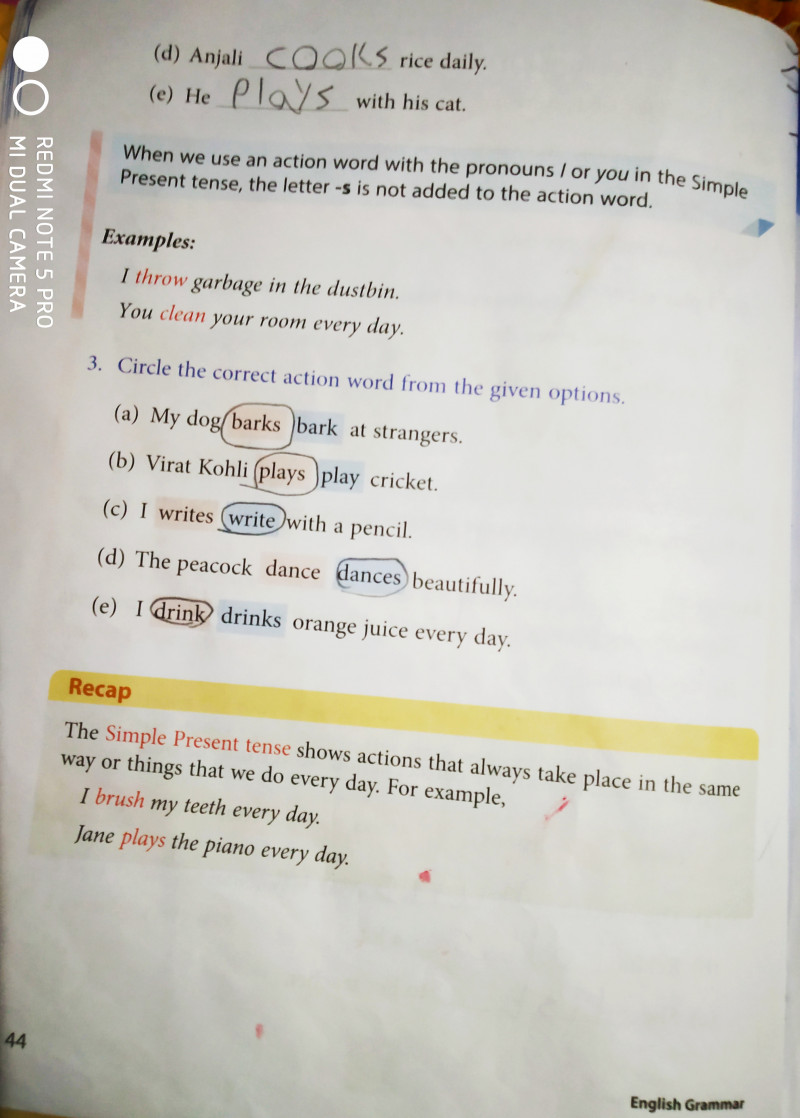 (d) Anjali cooks rice daily.
(e) He plays with his cat.
When we use an action word with the pronouns I or you in the Simple
Present tense, the letter -s is not added to the action word.
Examples:
I throw garbage in the dustbin.
You clean your room every day.
3. Circle the correct action word from the given options.
(a) My dog barks bark at strangers.
(b) Virat Kohli plays play cricket.
(c) I writes write with a pencil.
(d) The peacock dance dances beautifully.
(e) I drink drinks orange juice every day.
Recap
The Simple Present tense shows actions that always take place in the same
way or things that we do every day. For example,
I brush my teeth every day.
Jane plays the piano every day.
44
English Grammar
REDMI NOTE 5 PRO
MI DUAL CAMERA